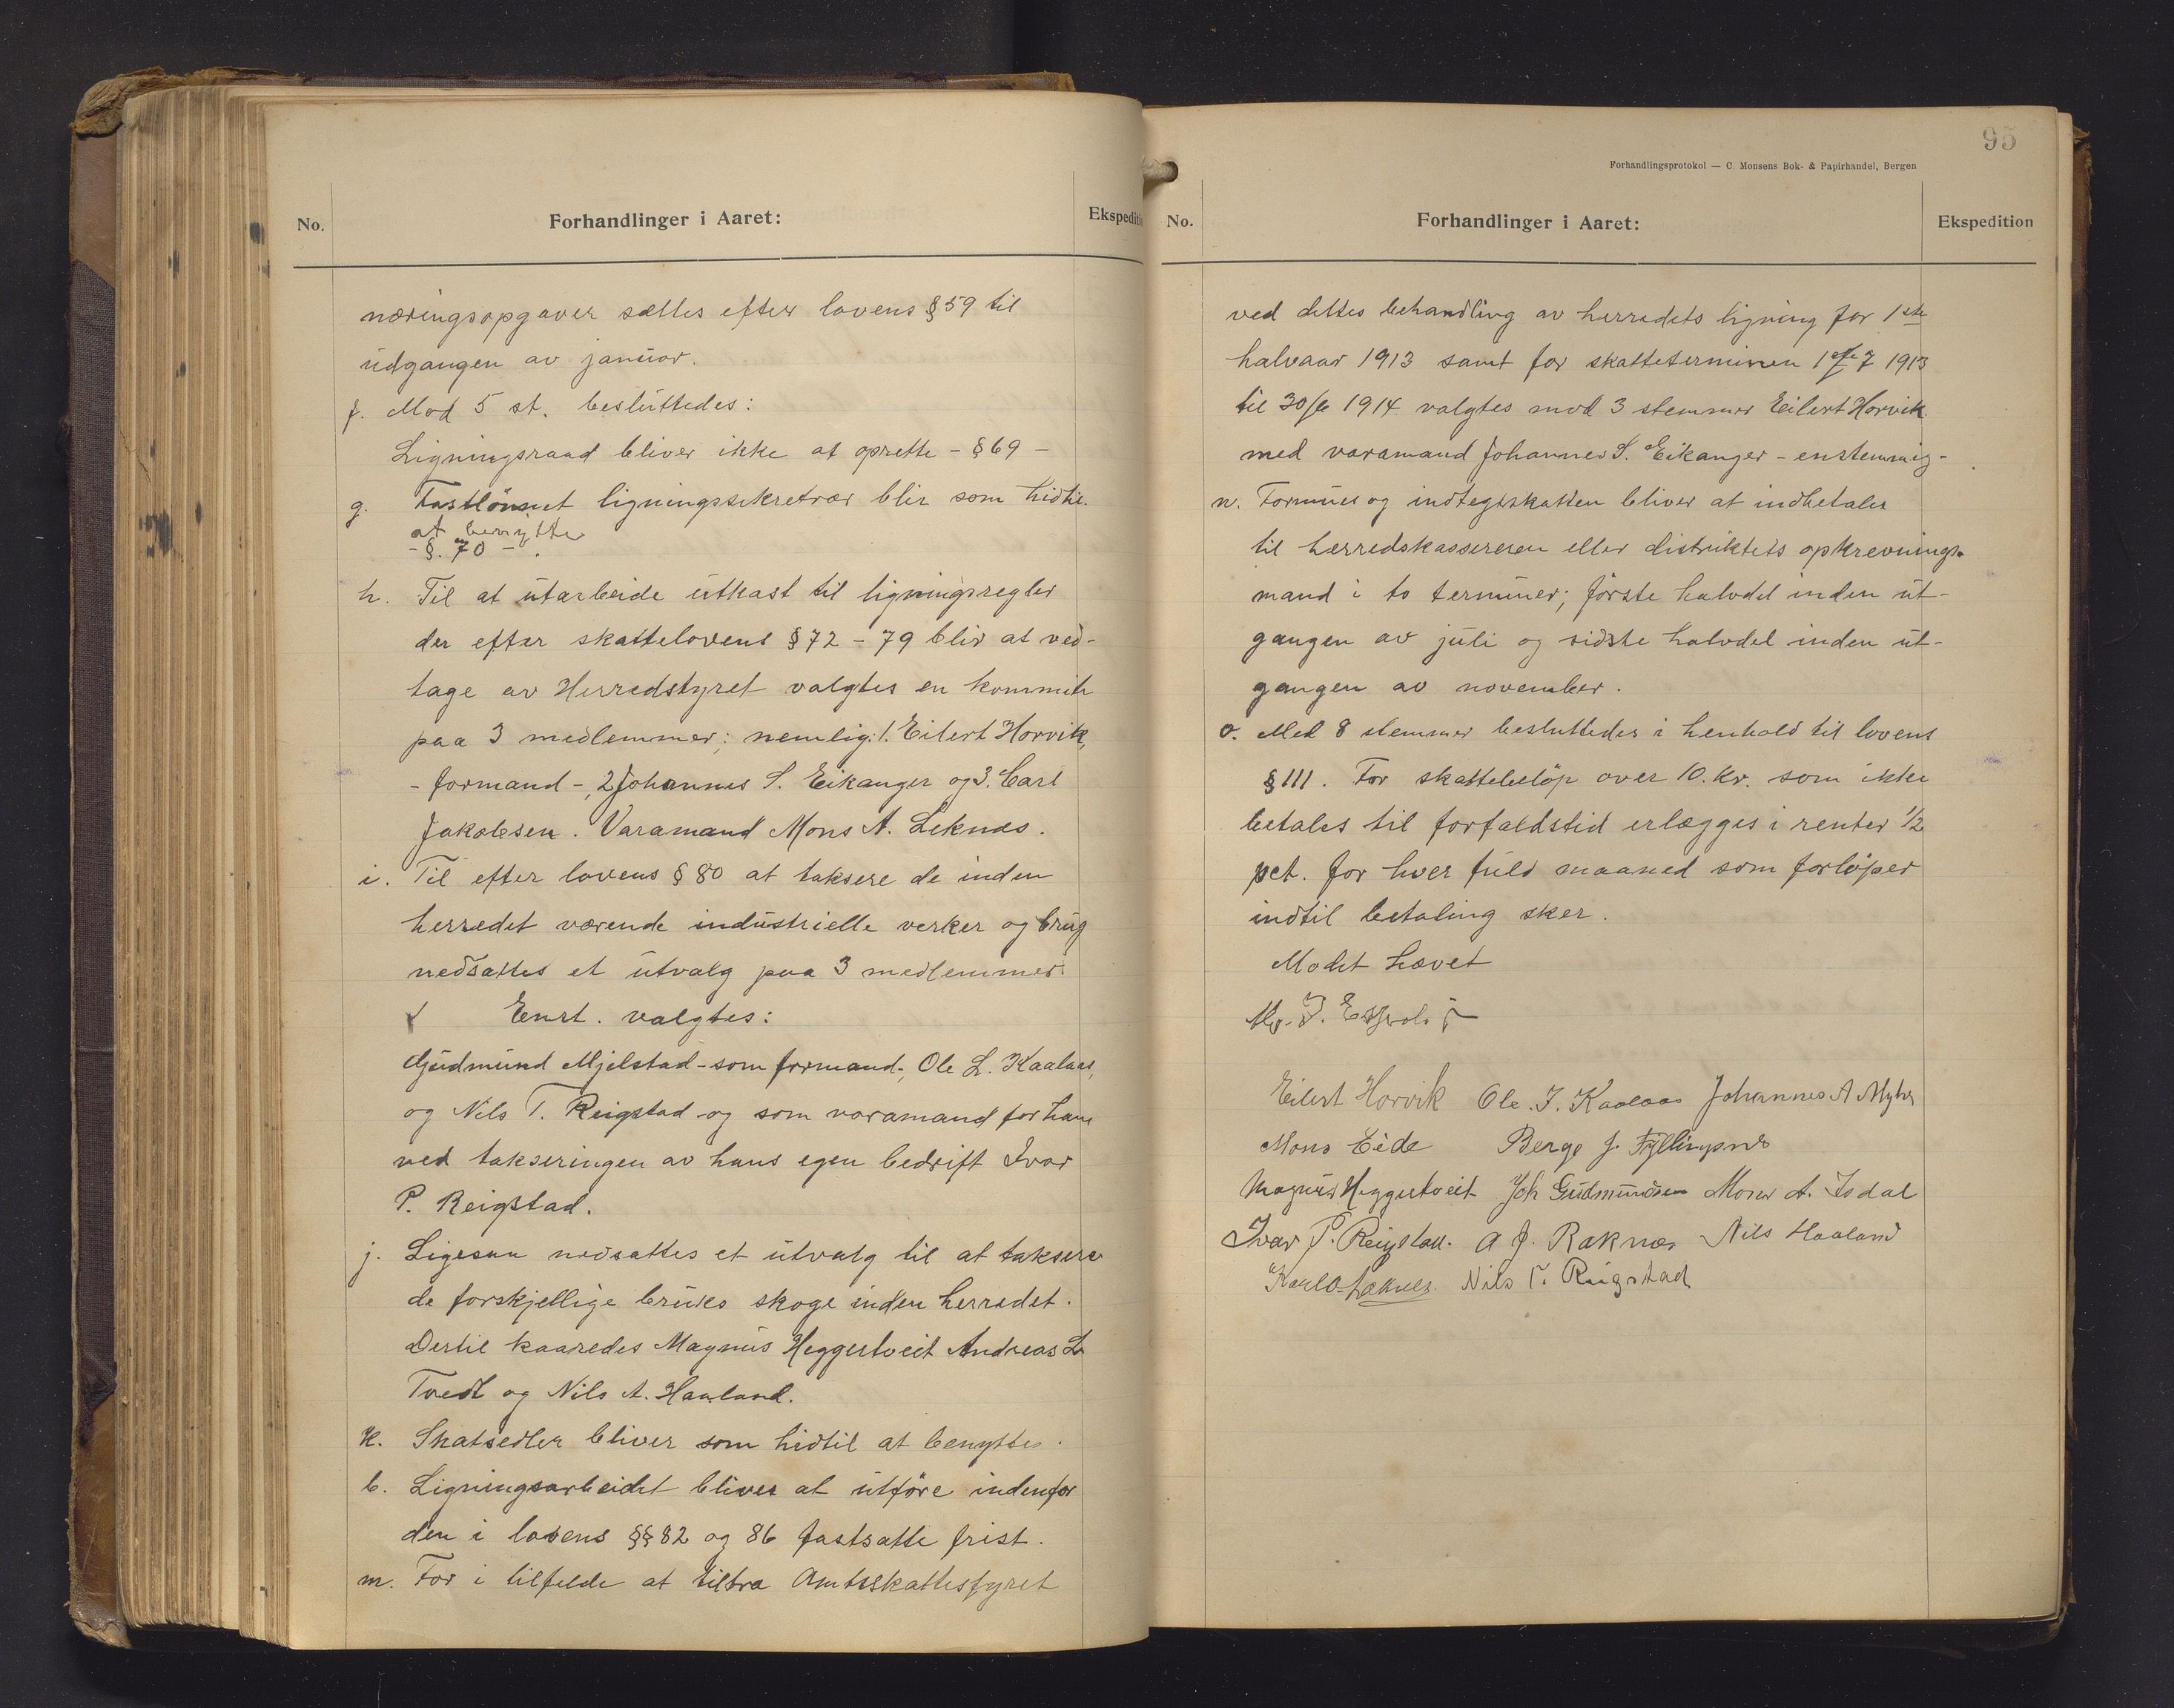 No.
Forhandlinger i Aaret:
Ekspediti
næringsopgaver sættes efter lovens § 59 til
udgangen av januar.
f. Mod 5 st. besluttedes:
Ligningsraad bliver ikke at oprette - § 69 -
g. Fastlønnet ligningssekretær blir som hidtil
at benytte
- §. 70 - .
h. Til at utarbeide utkast til ligningsregler
der efter skattelovens § 72 - 79 blir at ved-
tage av Herredstyret valgtes en kommite
paa 3 medlemmer; nemlig: 1. Eilert Horvik,
- formand -, 2 Johannes S. Eikanger og 3. Carl
Jakobsen. Varamand Mons A. Leknes.
i. Til efter lovens § 80 at taksere de inden
herredet værende industrielle verker og brug
nedsattes et utvalg paa 3 medlemmer.
Enst. valgtes:
Gudmund Mjelstad - som formand -, Ole L. Kaalaas,
og Nils T. Reigstad og som varamand for ham
ved takseringen av hans egen bedrift Ivar
P. Reigstad.
j. Ligesaa nedsattes et utvalg til at taksere
de forskjellige bruks skoge inden herredet.
Dertil kaaredes Magnus Heggertveit Andreas L
Tvedt og Nils A. Haaland.
k. Skatsedler bliver som hidtil at benytte.
l. Ligningsarbeidet bliver at utføre indenfor
den i lovens §§ 82 og 86 fastsatte frist.
m. For i tilfelde at tiltra Amtsskattestyret
95
Forhandlingsprotokol — C. Monsens Bok- & Papirhandel, Bergen
No.
Forhandlinger i Aaret:
Ekspedition
ved dettes behandling av herredets ligning for 1ste
halvaar 1913 samt for skatteterminen 1 7 1913
til 30/6 1914 valgtes mod 3 stemmer Eilert Horvik
med varamand Johannes S. Eikanger - enstemmig -
n. Formues og indtegtsskatten bliver at indbetales
til herredskassereren eller distriktets opkrevnings-
mand i to terminer; første halvdel inden ut-
gangen av juli og sidste halvdel inden ut-
gangen av november.
o. Med 8 stemmer besluttedes i henhold til lovens
§ 111. For skattebeløp over 10. kr. som ikke
betales til forfaldstid erlægges i renter 1/2
pct. for hver fuld maaned som forløper
indtil betaling sker.
Modet hævet
Eilert Horvik Ole. J. Kaalaas Johannes A Myhr
Mons Eide Berge J. Fyllingsnes
Magnus Heggertveit Joh Gudmundsen Mons A. Isdal
Ivar P. Reigstad. A J. Raknes Nils Haaland
Nils T. Reigstad